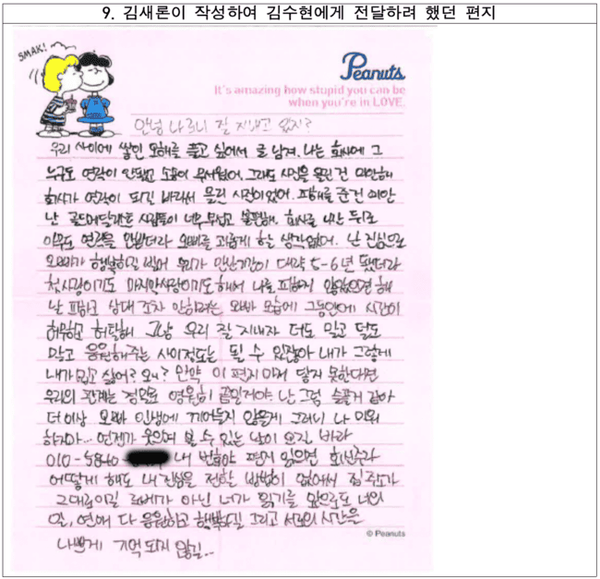 9. 김새론이 작성하여 김수현에게 전달하려 했던 편지
SMAK!
Peanuts
It's amazing how stupid you can be
when you're in LOVE.
안녕 나르니 잘 지내고 있지?
우리 사이에 쌓인 오해를 풀고 싶어서 글 남겨. 나는 회사에 그
누구도 연락이 안되었고 소송이 무서웠어. 그래도 사진을 올린 건 미안해
회사가 연락이 되길 바래서 올린 사진이었어. 피해를 준 건 미안
난 골드메달리스트 사람들이 너무 무섭고 불편해. 회사를 나간 뒤로
아무도 연락을 안받더라 오빠를 괴롭게 할 생각없어. 난 진심으로
오빠가 행복하길 빌어 우리가 만난기간이 대략 5-6년 됐더라
첫사랑이기도 마지막사랑이기도 해서 나를 피하지 않았으면 해
날 피하고 상대 조차 안하려는 오빠 모습에 그동안에 시간이
허무하고 허탈해 그냥 우리 잘 지내자 더도 말고 덜도
말고 응원해주는 사이정도는 될 수 있잖아 내가 그렇게
내가 밉고 싫어? 왜? 만약 이 편지마저 닿지 못한다면
우리의 관계는 정말로 영원히 끝일거야 난 그럼 슬플거 같아
더이상 오빠 인생에 끼어들지 않을게 그러니 나 미워
하지마... 언젠가 웃으며 볼 수 있는 날이 오길 바라
010-5840 내 번호야 편지 읽으면 회신주라
어떻게 해도 내 진심을 전할 방법이 없어서
그대로이길 아닌 너가 읽기를 앞으로도 너의
일, 연애 다 응원하고 행복하길 그리고 시간은
나쁘게 기억 되지 않길...
© Peanuts